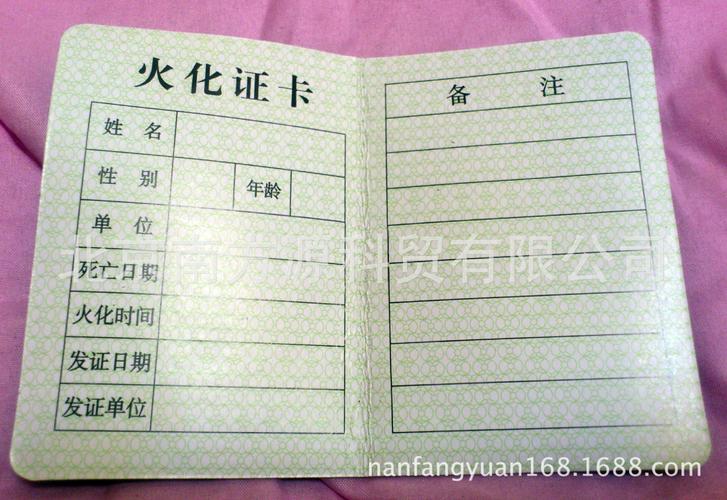 火化证卡
姓 名
性 别 年龄
单 位
死亡日期
火化时间
发证日期
发证单位
备 注
北京南方源科贸有限公司
nanfangyuan168.1688.com